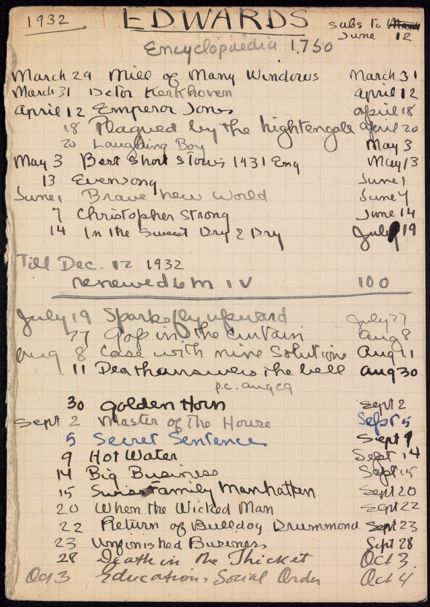 1932 EDWARDS subs to March
June 12
Encyclopaedia 1.750
March 29 Mill of Many Windows March 31
March 31 Detor Kerkhoven April 12
April 12 Emperor Jones April 18
18 Plagued by the Nightengale April 20
20 Laughing Boy May 3
May 3 Best Short Stories 1931 Eng May 13
13 Evensong June 1
June 1 Brave new World June 7
7 Christopher Strong June 14
14 In the Sweet Dry & Dry July 19
Till Dec. 12 1932
renewed 6 m IV 100
July 19 Sparks fly upward July 27
27 Gap in the Curtain Aug 8
Aug 8 Case with nine Solutions Aug 11
11 Death answers the bell Aug 30
p.c. aug 29
30 Golden Horn Sept 2
Sept 2 Master of The House Sept 5
5 Secret Sentence Sept 9
9 Hot Water Sept 14
14 Big Business Sept 15
15 Swiss Family Manhattan Sept 20
20 When the Wicked Man Sept 22
22 Return of Bulldog Drummond Sept 23
23 Unfinished Business Sept 28
28 Death in the Thicket Oct 3
Oct 3 Education & Social Order Oct 4